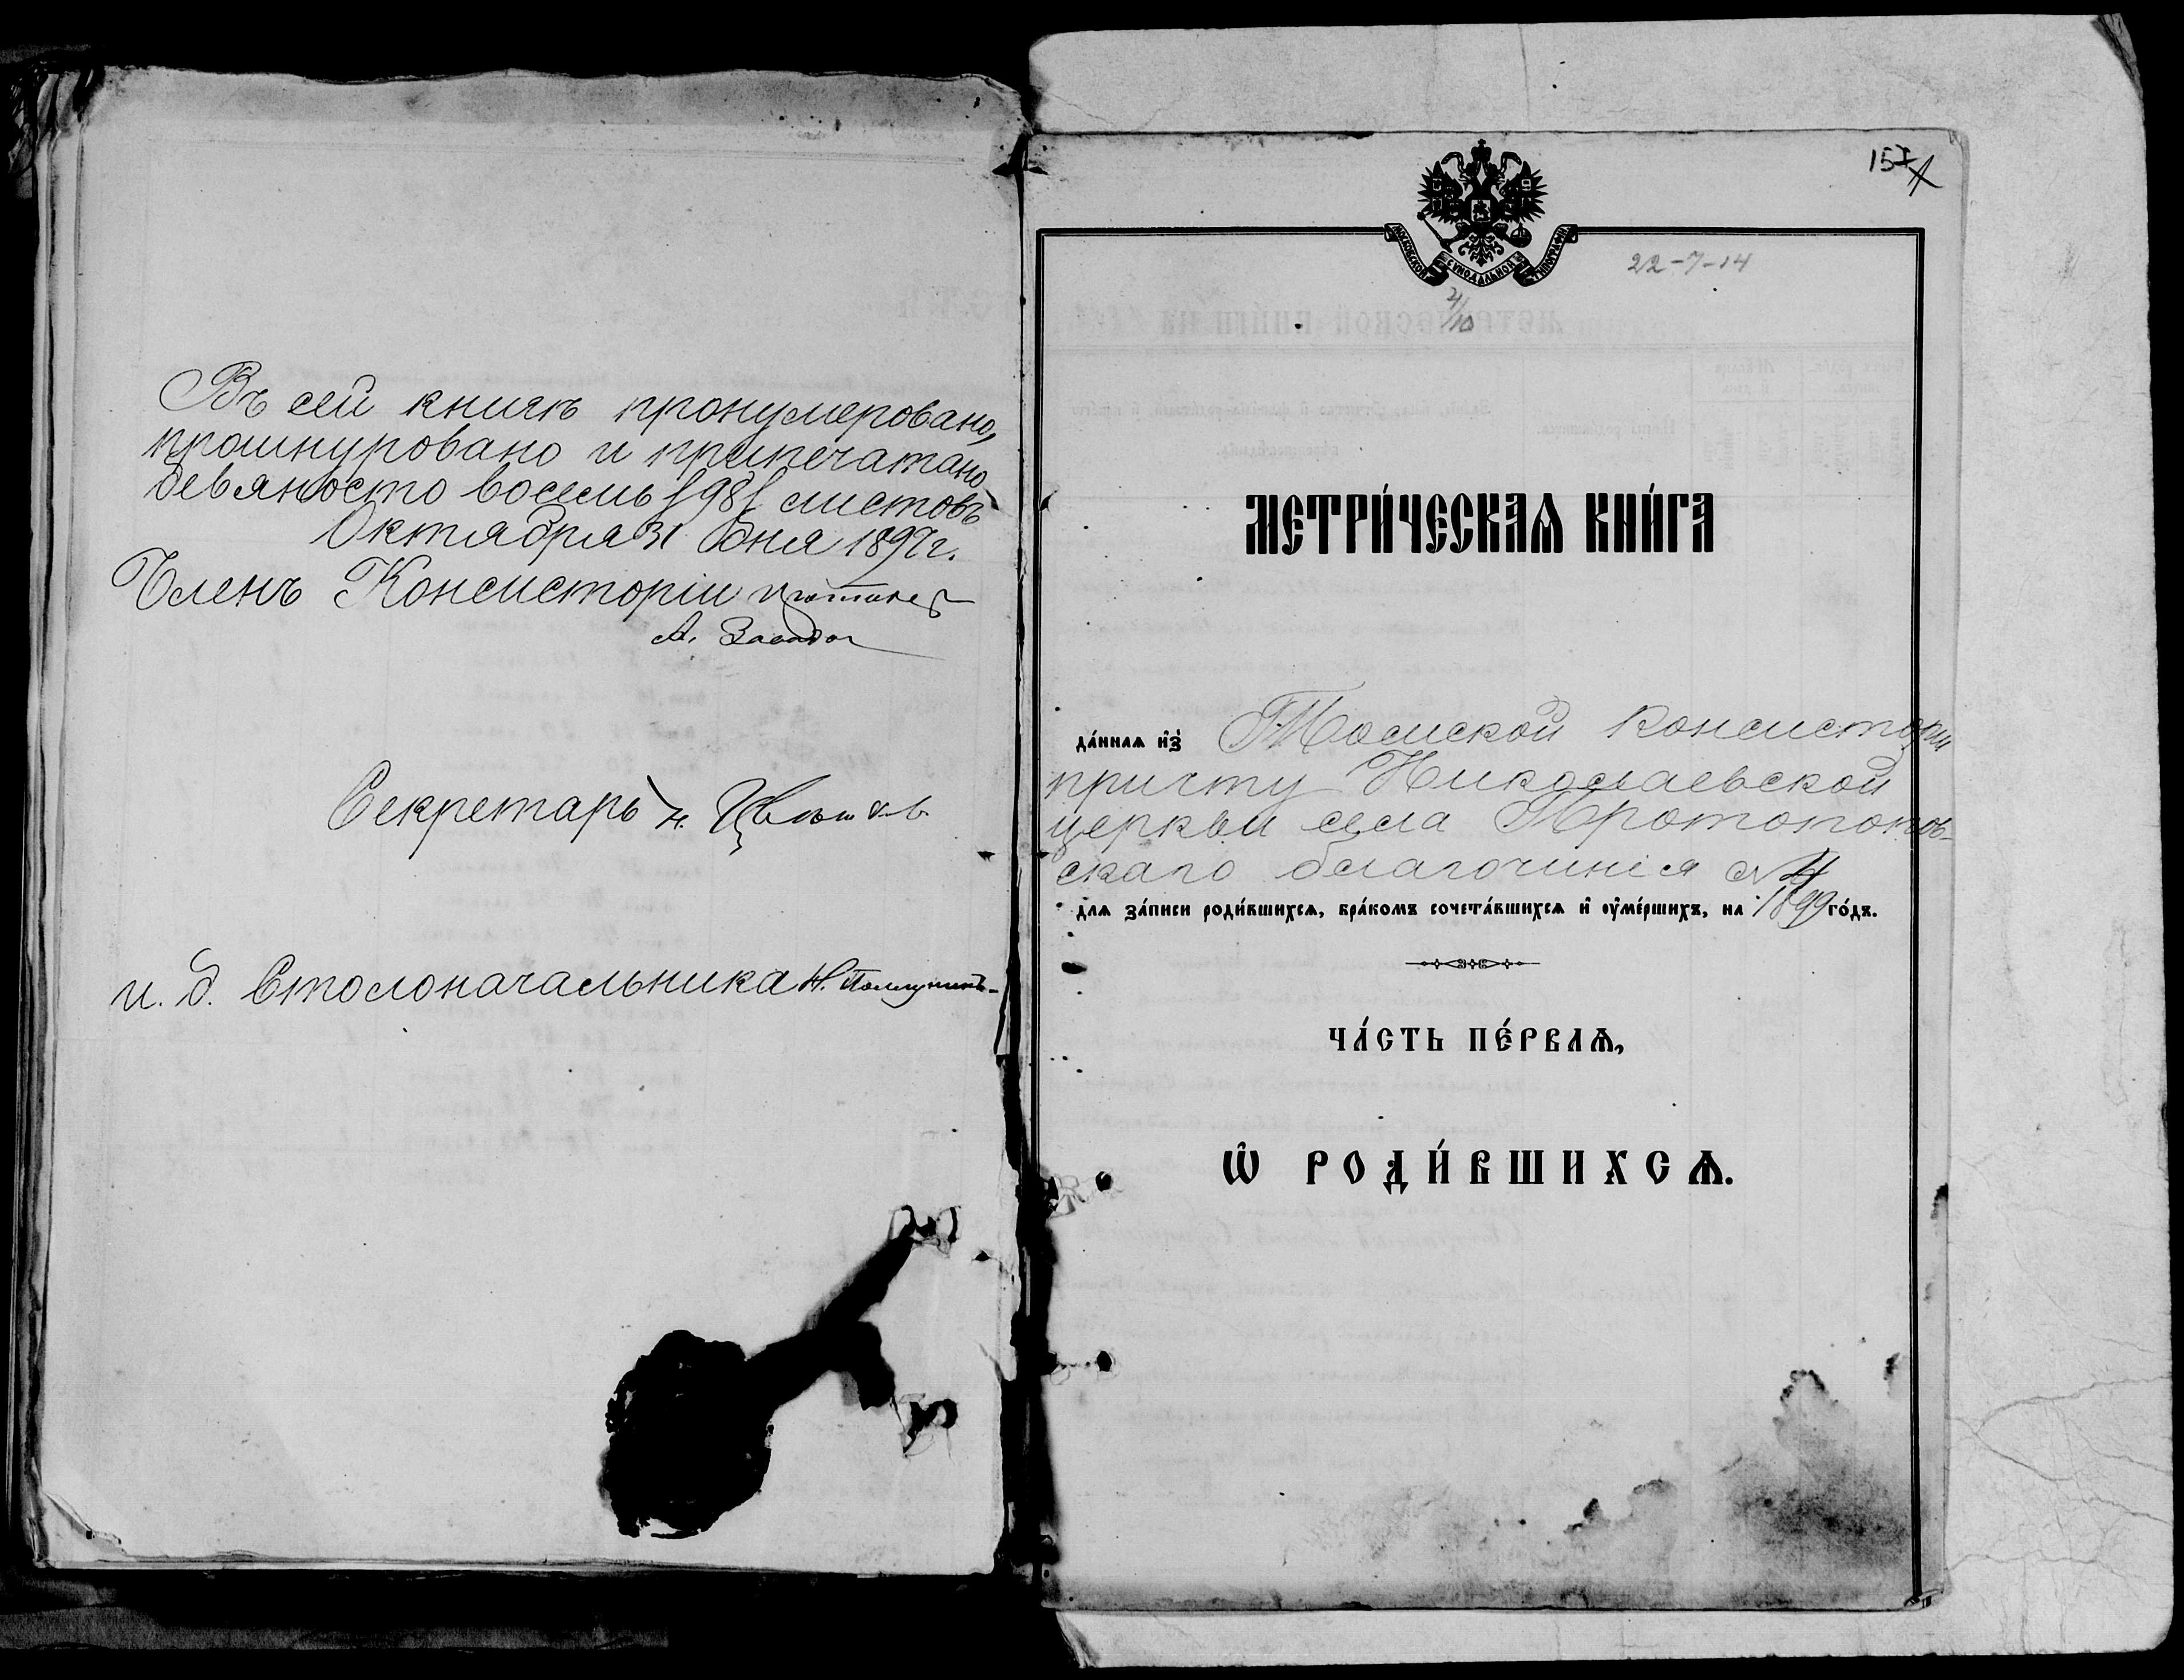 Въ сей книгѣ пронумеровано,
прошнуровано и припечатано
девяносто восемь /98/ листовъ
Октября 31 дня 1897 г.
Членъ Консисторіи
А.
Секретарь Н.
и. д. Столоначальника Н.
157
МОСКОВСКОЙ СѴНОДАЛЬНОЙ ТИПОГРАФІИ
22-7-14
4/10
МЕТРИ́ЧЕСКАѦ КНИ́ГА
да́ннаѧ и҆з̾ Томской Консисторіи
причту Николаевской
церкви села Протопопов-
скаго благочинія № 4
для за́писи роди́вшихсѧ, бра́комъ сочета́вшихсѧ и҆ оу҆ме́ршихъ, на 1899 го́дъ.
ЧА́СТЬ ПЕ́РВАѦ,
Ѽ РОДИ́ВШИХСѦ.